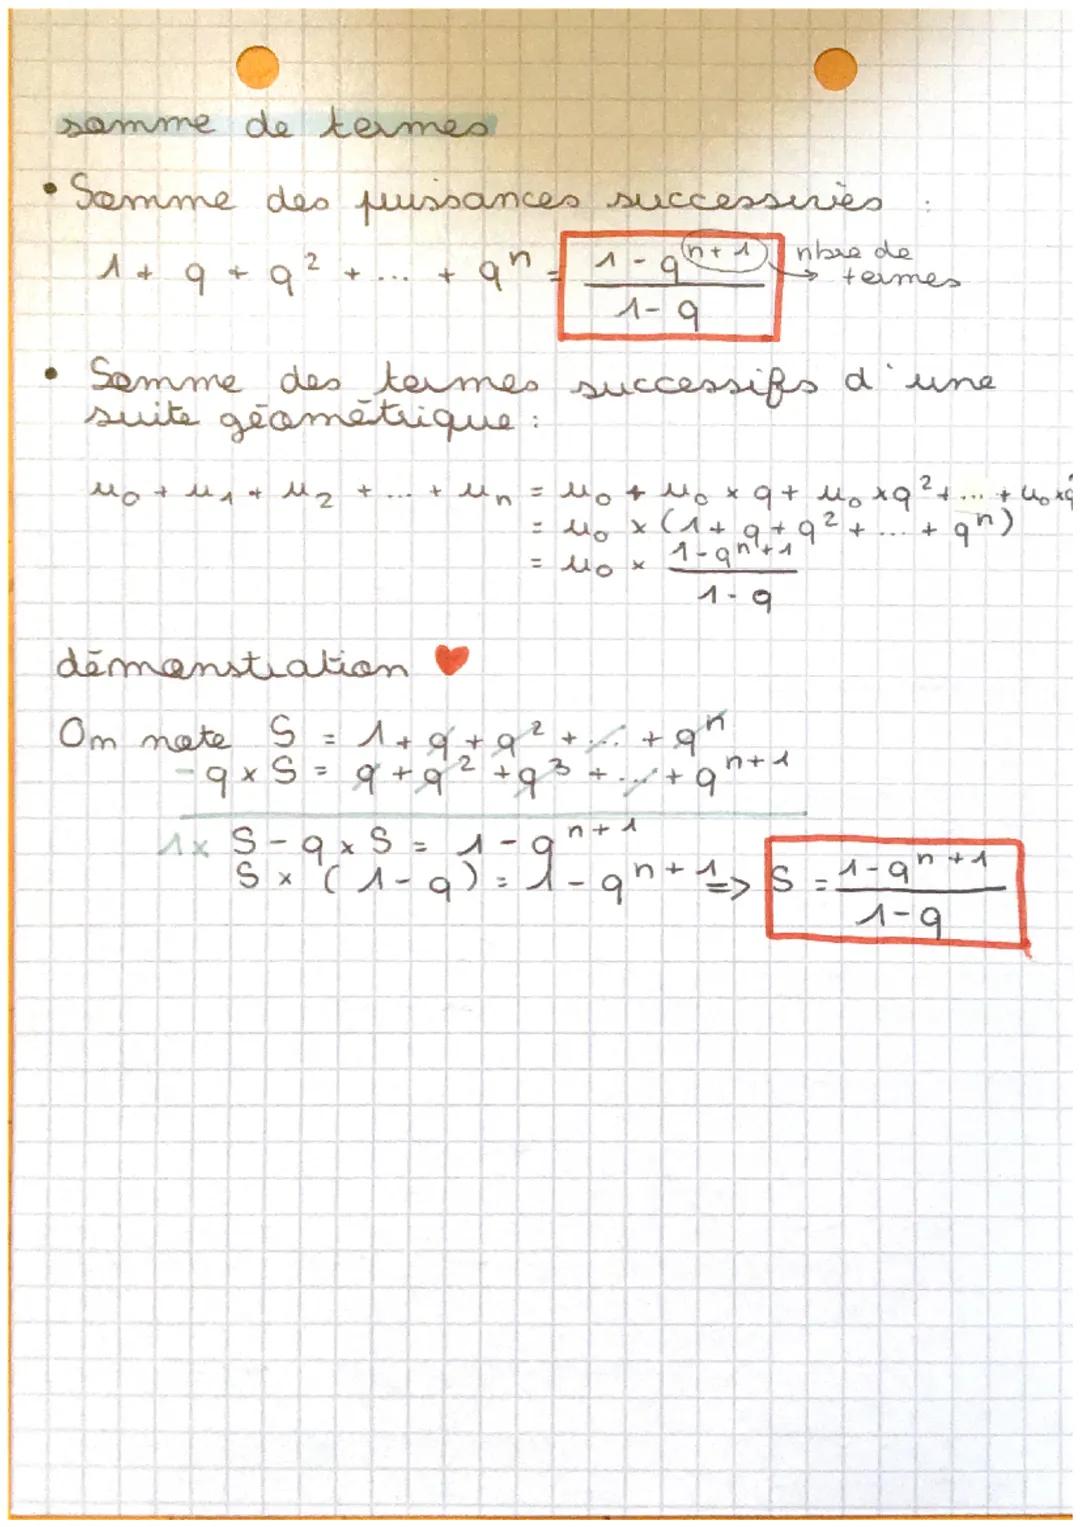 somme de termes
• Somme des puissances successives :
1 + q + q² + ... + qⁿ = (1 - qⁿ⁺¹)/(1 - q) → nbre de termes
• Somme des termes successifs d'une
suite géométrique :
u₀ + u₁ + u₂ + ... + uₙ = u₀ + u₀ × q + u₀ × q² + ... + u₀ × q
= u₀ × (1 + q + q² + ... + qⁿ)
= u₀ × (1 - qⁿ⁺¹)/(1 - q)
démonstration ♥
On note S = 1 + q + q² + ... + qⁿ
- q × S = q + q² + q³ + ... + qⁿ⁺¹
1× S - q × S = 1 - qⁿ⁺¹
S × (1 - q) = 1 - qⁿ⁺¹ => S = (1 - qⁿ⁺¹)/(1 - q)